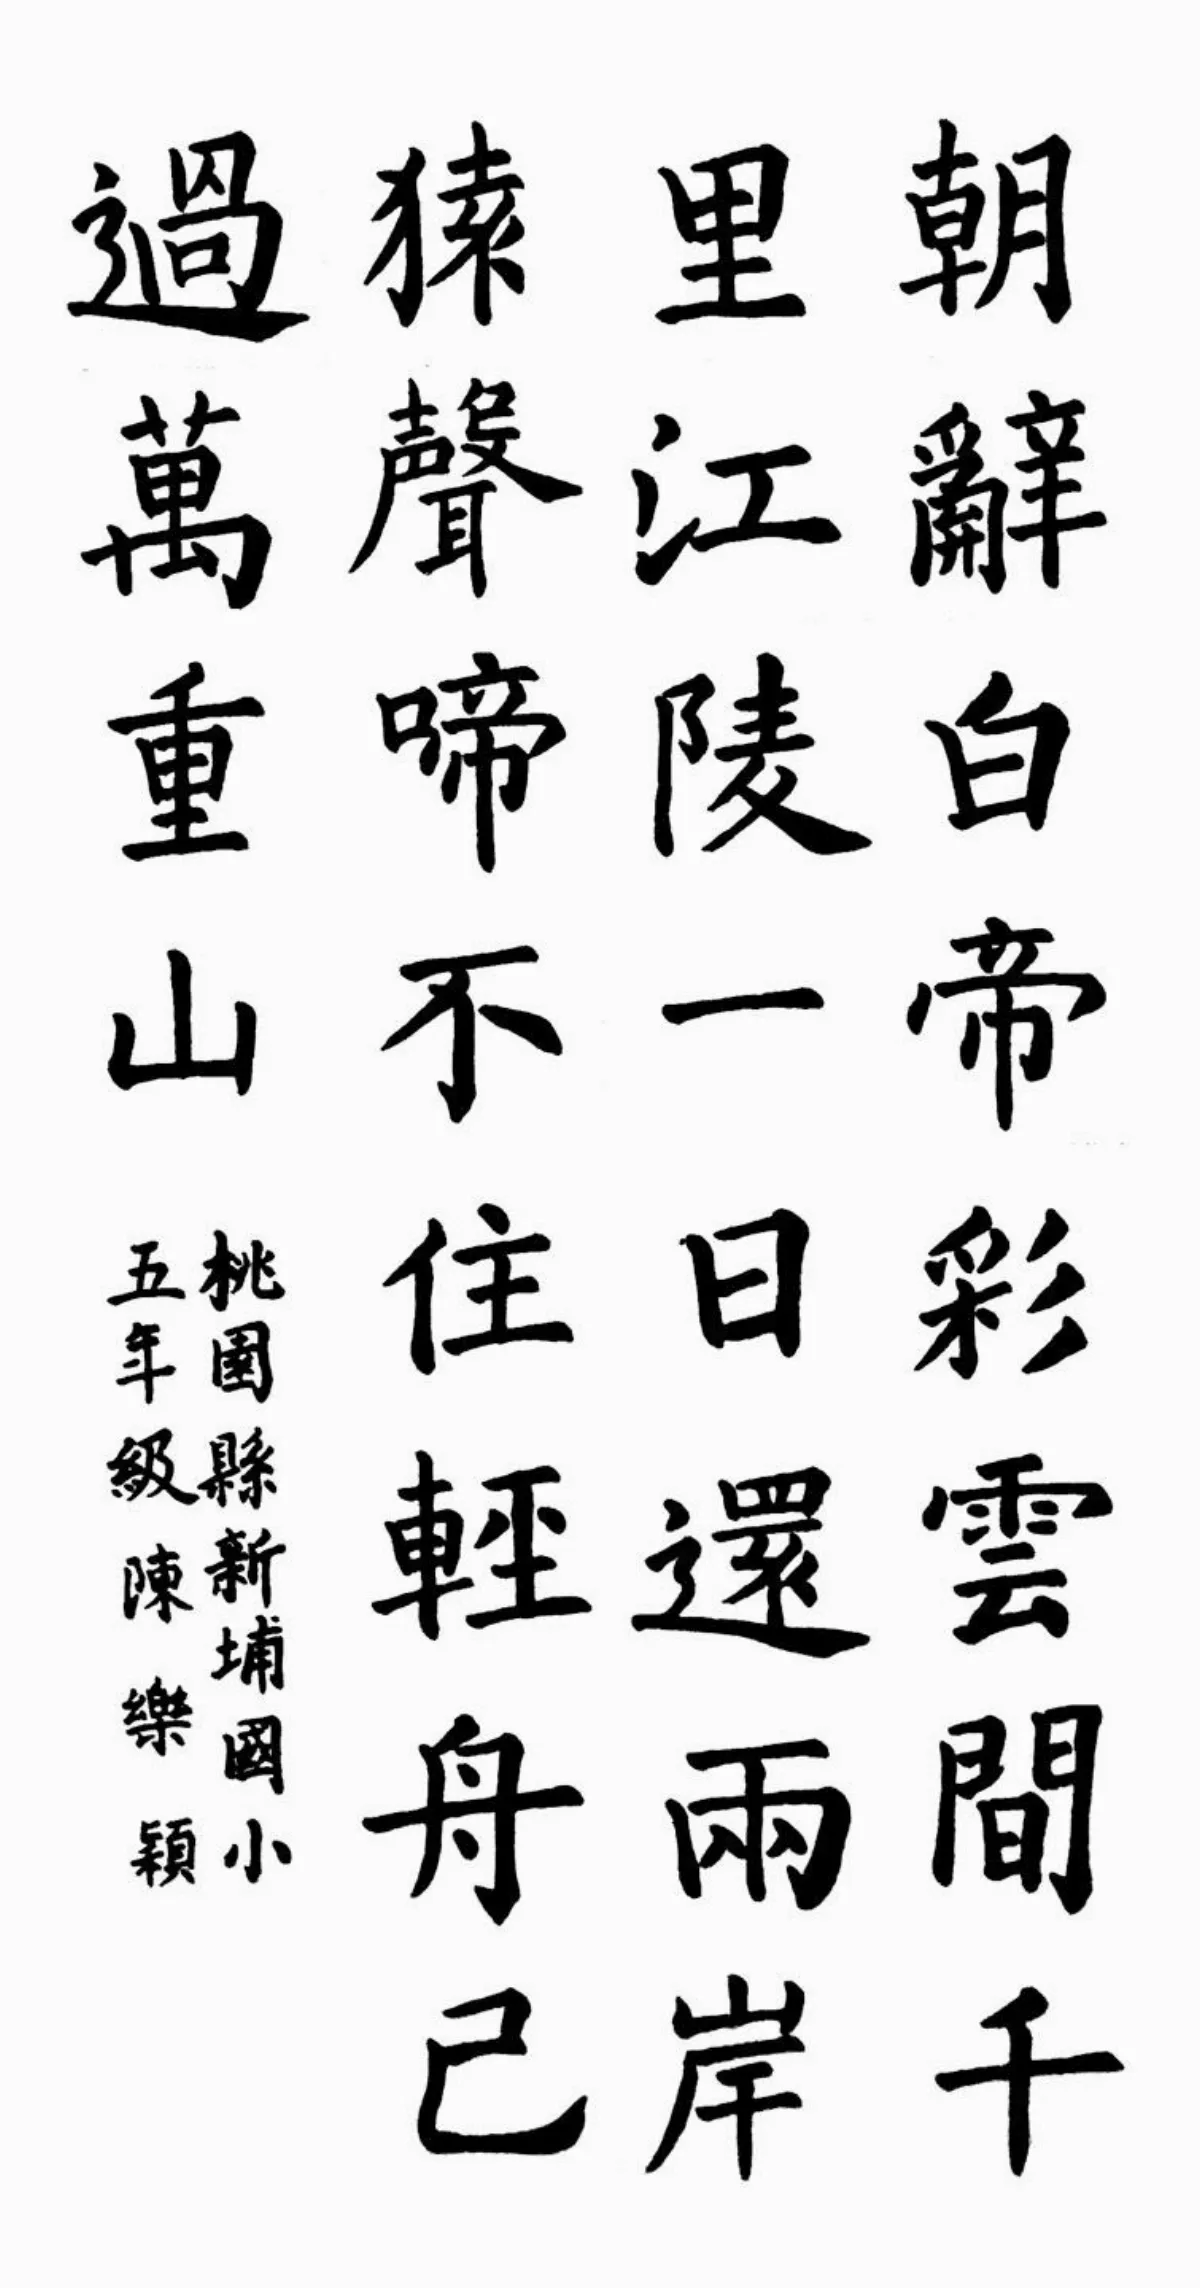 朝辭白帝彩雲間千
里江陵一日還兩岸
猿聲啼不住輕舟已
過萬重山
桃園縣新埔國小
五年級陳樂穎